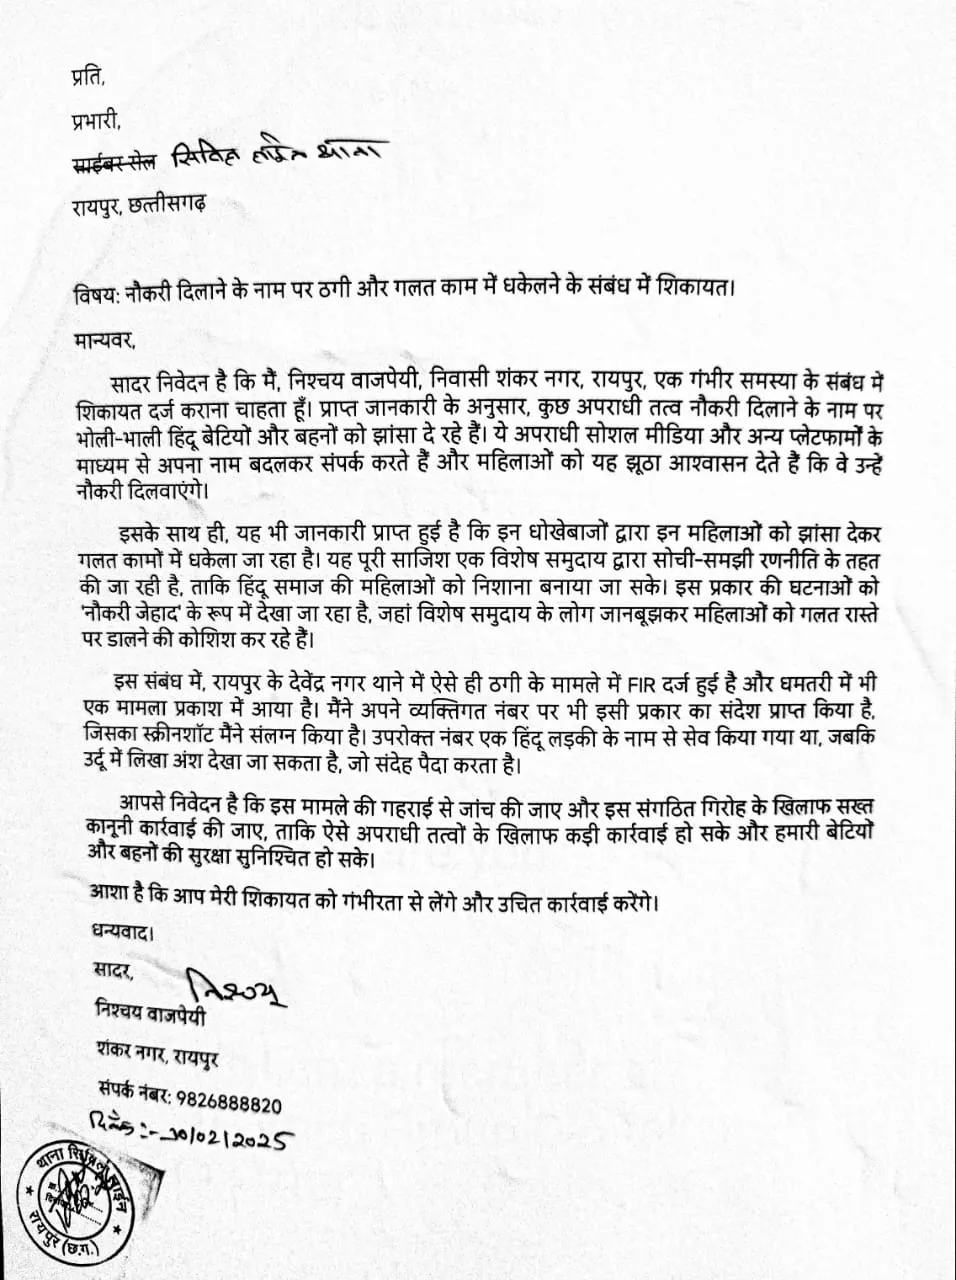 प्रति,
प्रभारी,
साईबर सेल सिविल लाईन थाना
रायपुर, छत्तीसगढ़
विषय: नौकरी दिलाने के नाम पर ठगी और गलत काम में धकेलने के संबंध में शिकायत।
मान्यवर,
सादर निवेदन है कि मैं, निश्चय वाजपेयी, निवासी शंकर नगर, रायपुर, एक गंभीर समस्या के संबंध में
शिकायत दर्ज कराना चाहता हूँ। प्राप्त जानकारी के अनुसार, कुछ अपराधी तत्व नौकरी दिलाने के नाम पर
भोली-भाली हिंदू बेटियों और बहनों को झांसा दे रहे हैं। ये अपराधी सोशल मीडिया और अन्य प्लेटफार्मों के
माध्यम से अपना नाम बदलकर संपर्क करते हैं और महिलाओं को यह झूठा आश्वासन देते हैं कि वे उन्हें
नौकरी दिलवाएंगे।
इसके साथ ही, यह भी जानकारी प्राप्त हुई है कि इन धोखेबाजों द्वारा इन महिलाओं को झांसा देकर
गलत कामों में धकेला जा रहा है। यह पूरी साजिश एक विशेष समुदाय द्वारा सोची-समझी रणनीति के तहत
की जा रही है, ताकि हिंदू समाज की महिलाओं को निशाना बनाया जा सके। इस प्रकार की घटनाओं को
'नौकरी जेहाद' के रूप में देखा जा रहा है, जहां विशेष समुदाय के लोग जानबूझकर महिलाओं को गलत रास्ते
पर डालने की कोशिश कर रहे हैं।
इस संबंध में, रायपुर के देवेंद्र नगर थाने में ऐसे ही ठगी के मामले में FIR दर्ज हुई है और धमतरी में भी
एक मामला प्रकाश में आया है। मैंने अपने व्यक्तिगत नंबर पर भी इसी प्रकार का संदेश प्राप्त किया है,
जिसका स्क्रीनशॉट मैंने संलग्न किया है। उपरोक्त नंबर एक हिंदू लड़की के नाम से सेव किया गया था, जबकि
उर्दू में लिखा अंश देखा जा सकता है, जो संदेह पैदा करता है।
आपसे निवेदन है कि इस मामले की गहराई से जांच की जाए और इस संगठित गिरोह के खिलाफ सख्त
कानूनी कार्रवाई की जाए, ताकि ऐसे अपराधी तत्वों के खिलाफ कड़ी कार्रवाई हो सके और हमारी बेटियों
और बहनों की सुरक्षा सुनिश्चित हो सके।
आशा है कि आप मेरी शिकायत को गंभीरता से लेंगे और उचित कार्रवाई करेंगे।
धन्यवाद।
सादर,
निश्चय
निश्चय वाजपेयी
शंकर नगर, रायपुर
संपर्क नंबर: 9826888820
दिनाँक :- /02/2025
थाना सिविल लाईन
रायपुर (छ.ग.)